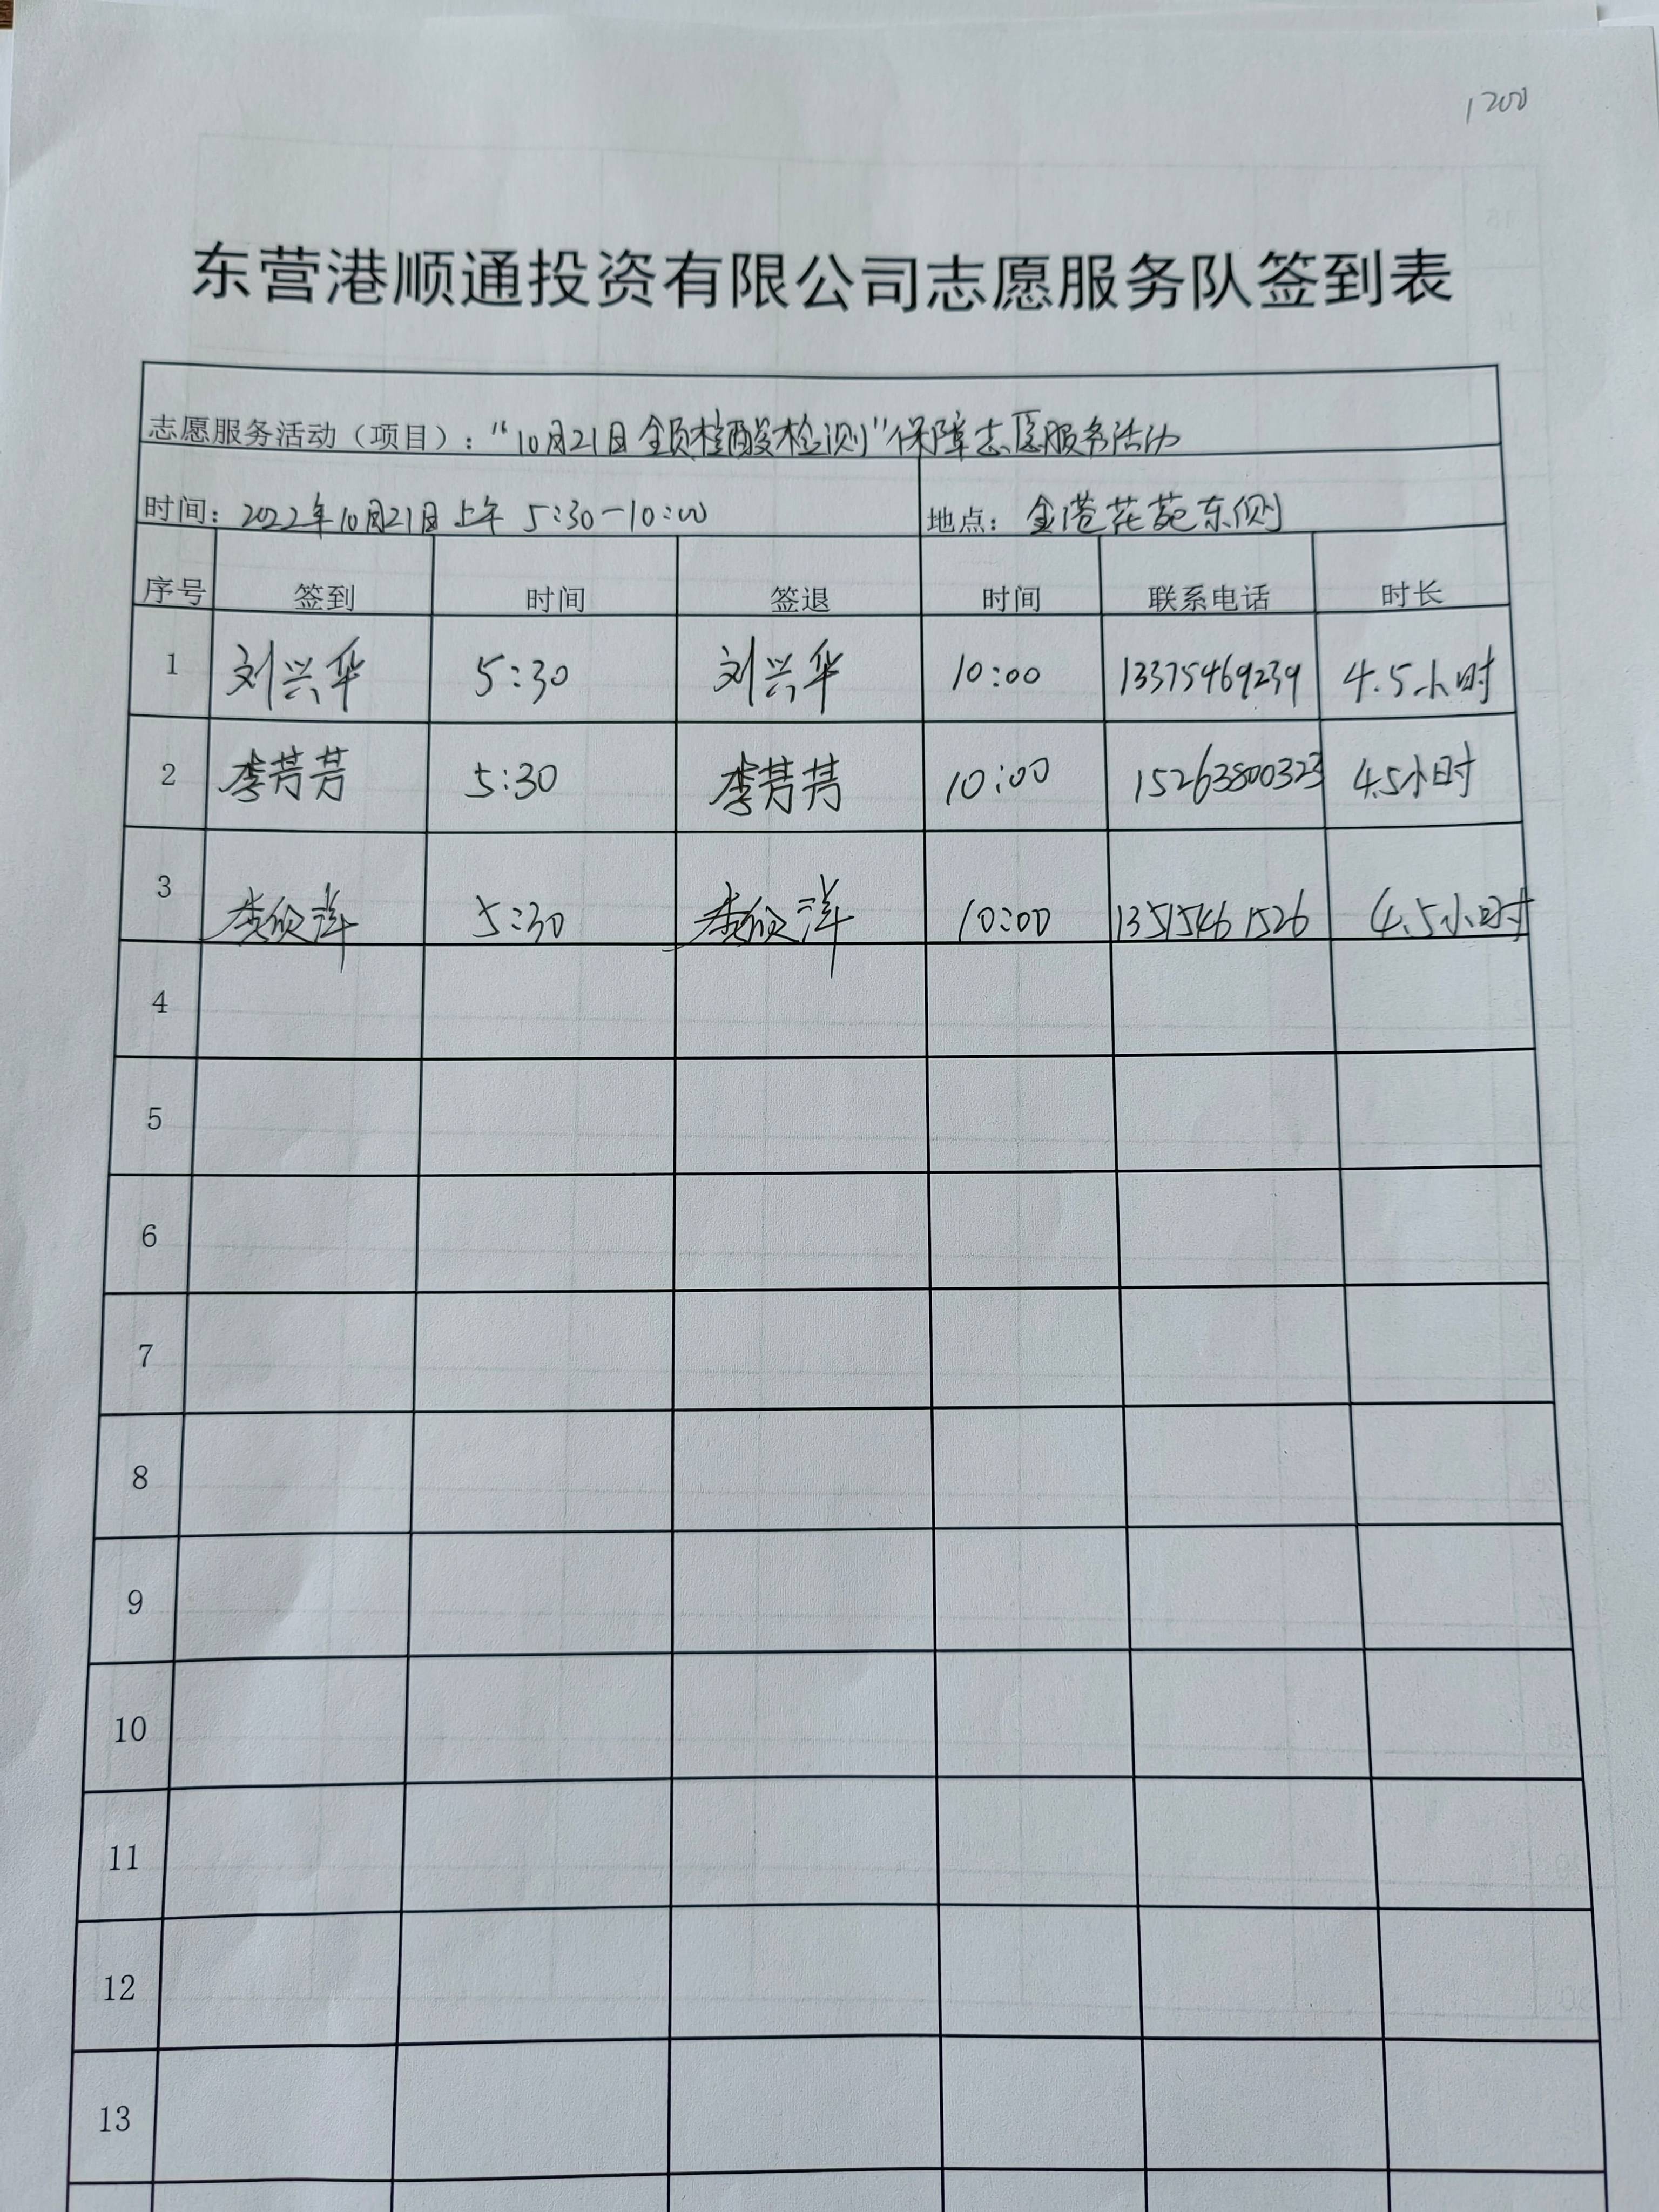 1200
东营港顺通投资有限公司志愿服务队签到表
志愿服务活动（项目）："10月21日全员核酸检测"保障志愿服务活动
时间：2022年10月21日上午 5:30-10:00 地点：金港花苑东侧
序号 签到 时间 签退 时间 联系电话 时长
1 刘兴华 5:30 刘兴华 10:00 13375469239 4.5小时
2 李芳芳 5:30 李芳芳 10:00 15263800323 4.5小时
3 5:30 10:00 13515461526 4.5小时
4
5
6
7
8
9
10
11
12
13